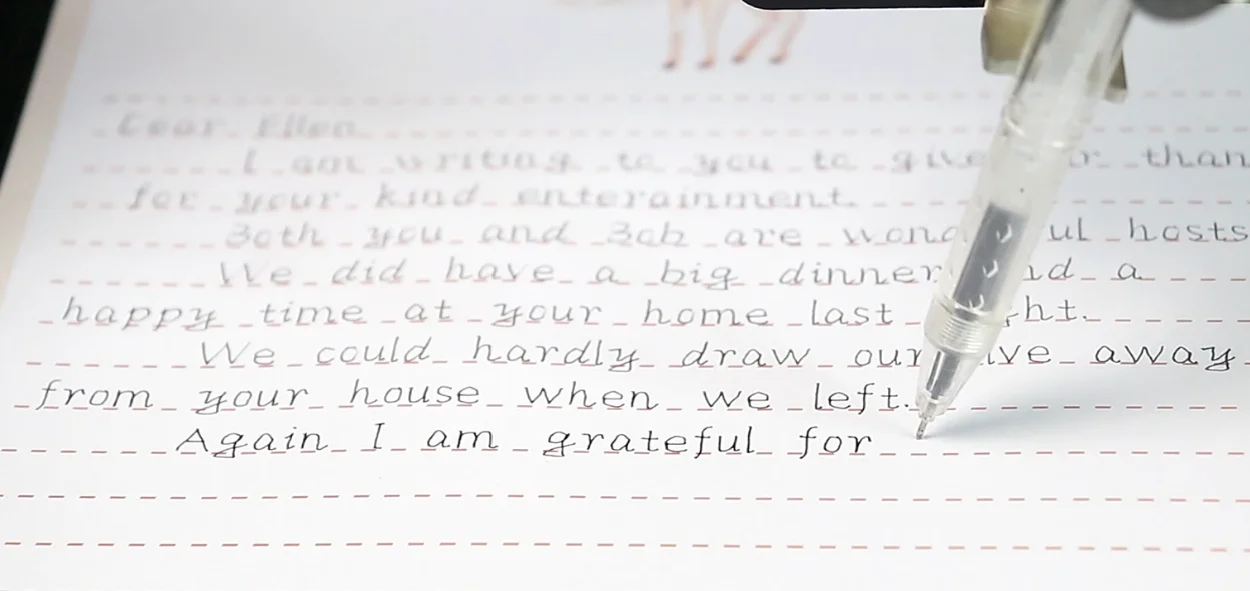 Dear Ellen
I am writing to you to give
for your kind enterainment.
Both you and Bob are hosts
We did have a big dinner a
happy time at your home last
We could hardly draw our away
from your house when we left.
Again I am grateful for